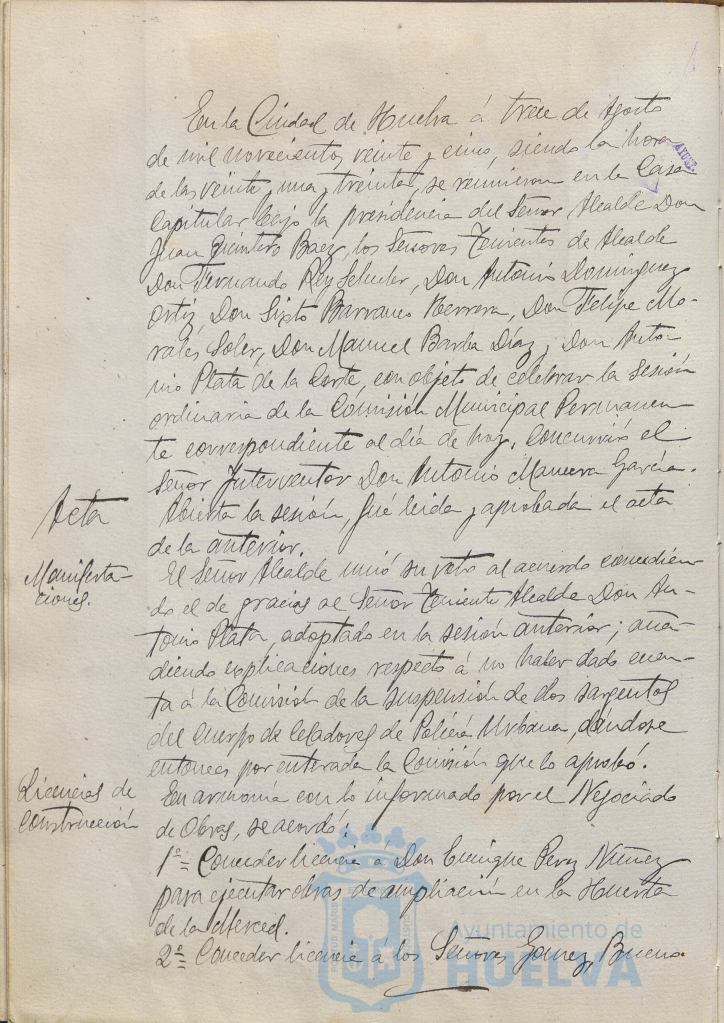 En la Ciudad de Huelva á trece de Agosto
de mil novecientos veinte y cinco, siendo la hora
de las veinte y una y treinta, se reunieron en la Casa
Capitular bajo la presidencia del Señor Alcalde Don
Juan Quintero Baez, los Señores Tenientes de Alcalde
Don Fernando Rey Schuler, Don Antonio Dominguez
Ortiz, Don Sixto Barranco Herrera, Don Felipe Mo-
rales Soler, Don Manuel Barba Díaz y Don Anto-
nio Plata de la Corte, con objeto de celebrar la sesión
ordinaria de la Comisión Municipal Permanen
te correspondiente al día de hoy. Concurrió el
Señor Interventor Don Antonio García.
Acta
Abierta la sesión, fué leida y aprobada el acta
de la anterior.
Manifesta-
ciones.
El Señor Alcalde unió su voto al acuerdo concedien
do el de gracias al Señor Teniente Alcalde Don An-
tonio Plata, adoptado en la sesión anterior; aña-
diendo explicaciones respecto á no haber dado cuen-
ta á la Comisión de la suspensión de dos sargentos
del Cuerpo de Celadores de Policía Urbana, dándose
entonces por enterada la Comisión que lo aprobó.
Licencias de
construcción
En armonía con lo informado por el Negociado
de Obras, se acordó:
1º = Conceder licencia á Don Enrique Perez Nuñez
para ejecutar obras de ampliación en la Huerta
de la Merced.
2º = Conceder licencia á los Señores Gomez, Bueno
Ayuntamiento de
HUELVA